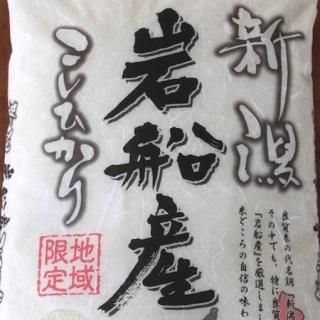 新潟
岩船産
こしひかり
地域
限定
良質米の代名詞『新潟
その中でも、特に良質
『岩船産』を厳選しまし
米どころの自信の味わ